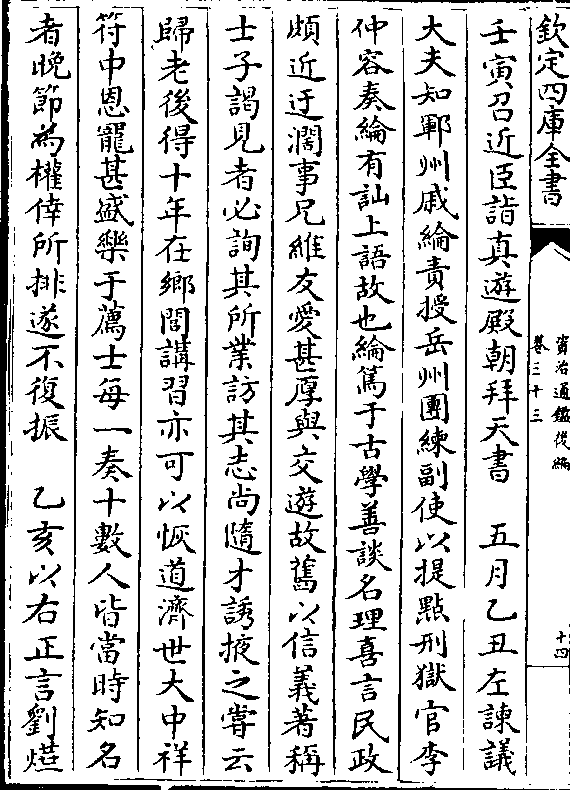 欽定四庫全書
資治通鑑後編
卷三十三
十四
壬寅召近臣詣真遊殿朝拜天書　五月乙丑左諫議
大夫知鄆州戚綸責授岳州團練副使以提點刑獄官李
仲容奏綸有訕上語故也綸篤于古學善談名理喜言民政
頗近迂濶事兄維友愛甚厚與交遊故舊以信義著稱
士子謁見者必詢其所業訪其志尚隨才誘掖之嘗云
歸老後得十年在鄉閭講習亦可以恢道濟世大中祥
符中恩寵甚盛樂于薦士每一奏十數人皆當時知名
者晩節為權倖所排遂不復振　乙亥以右正言劉燁